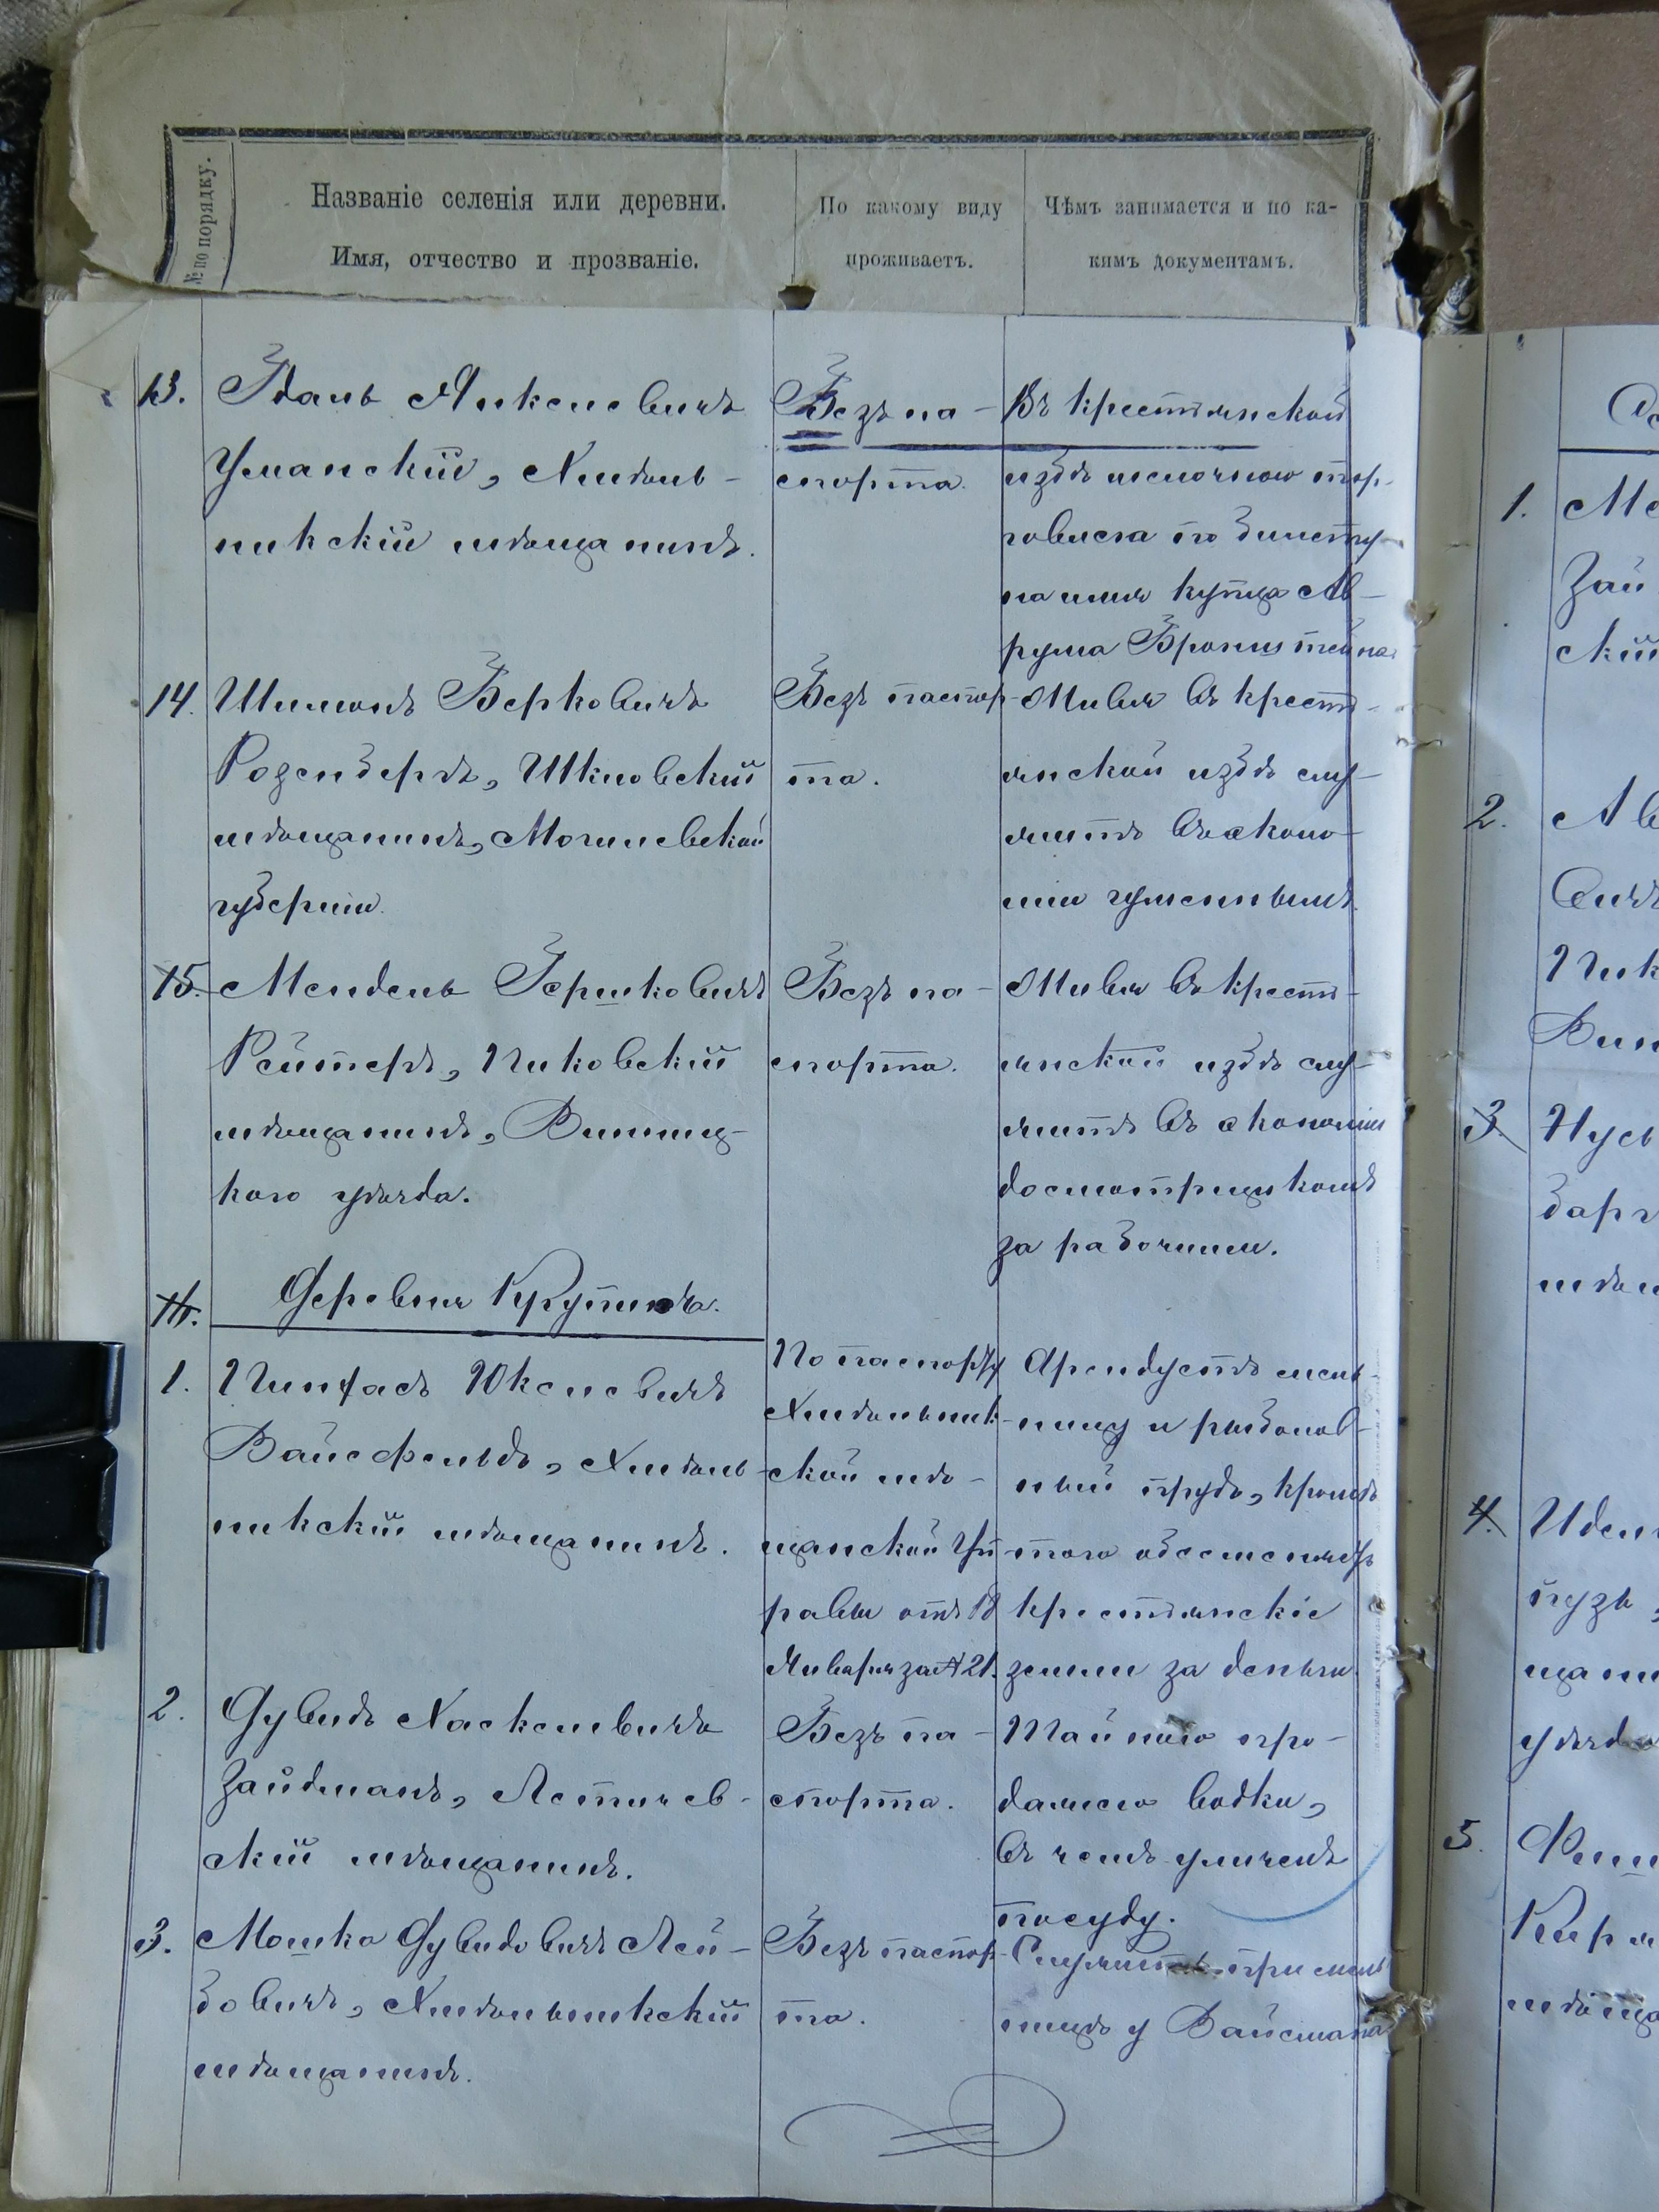 № по порядку.
Названіе селенія или деревни.
Имя, отчество и прозваніе.
По какому виду
проживаетъ.
Чѣмъ занимается и по ка-
кимъ документамъ.
13.
Уманскій, Хмѣль-
никскій мѣщанинъ.
Безъ па-
спорта.
Въ крестьянской
избѣ мелочною тор-
на имя купца Ав-
рума Бронштейна.
14.
Шимонъ Берковичъ
Розенберъ, Шкловскій
мѣщанинъ, Могилевской
губерніи.
Безъ паспор-
та.
Живя въ кресть-
янской избѣ слу-
житъ въ эконо-
міи гуменнымъ.
15.
Мендель Гершковичъ
Рейтеръ, Пиковскій
мѣщанинъ, Винниц-
кого уѣзда.
Безъ па-
спорта.
Живя въ кресть-
янской избѣ слу-
житъ въ экономіи
досмотрщикомъ
за рабочими.
16.
Деревня
1.
Пинхасъ Юкелевичъ
Вайсфельдъ, Хмѣль-
никскій мѣщанинъ.
По паспорту
Хмѣльник-
ской мѣ-
щанской Уп-
равы отъ 18
Января за № 21.
Арендуетъ мель-
ницу и рыболов-
ный прудъ, кромѣ
того
крестьянскіе
земли за деньги.
2.
Дувидъ Хаскелевичъ
Зайдманъ, Летичев-
скій мѣщанинъ.
Безъ па-
спорта.
Тайною про-
дажею водки,
въ чемъ уличенъ
посуду.
3.
Мошко Дувидовичъ Лей-
бовичъ, Хмѣльникскій
мѣщанинъ.
Безъ паспор-
та.
Служитъ при мель-
ницѣ у Вайсмана
1.
Зай
скій
2.
Ав
3
4.
5.